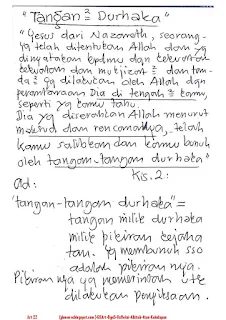 "Tangan² Durhaka"
"Yesus dari Nazareth, seorang
yg telah ditentukan Allah dan yg
dinyatakan kpdmu dgn kekuatan
kekuatan dan mukjizat² dan tan-
da² yg dilakukan oleh Allah dgn
perantaraan Dia di tengah² kamu,
seperti yg kamu tahu.
Dia yg diserahkan Allah menurut
maksud dan rencanaNya, telah
kamu salibkan dan kamu bunuh
oleh tangan-tangan durhaka"
Kis. 2:
ad:
"tangan-tangan durhaka" =
tangan milik durhaka
milik pikiran kejahatan
yg membunuh sso
adalah pikiran nya.
Pikiran nya yg memerintah utk
dilakukan penyiksaan.
Art 22